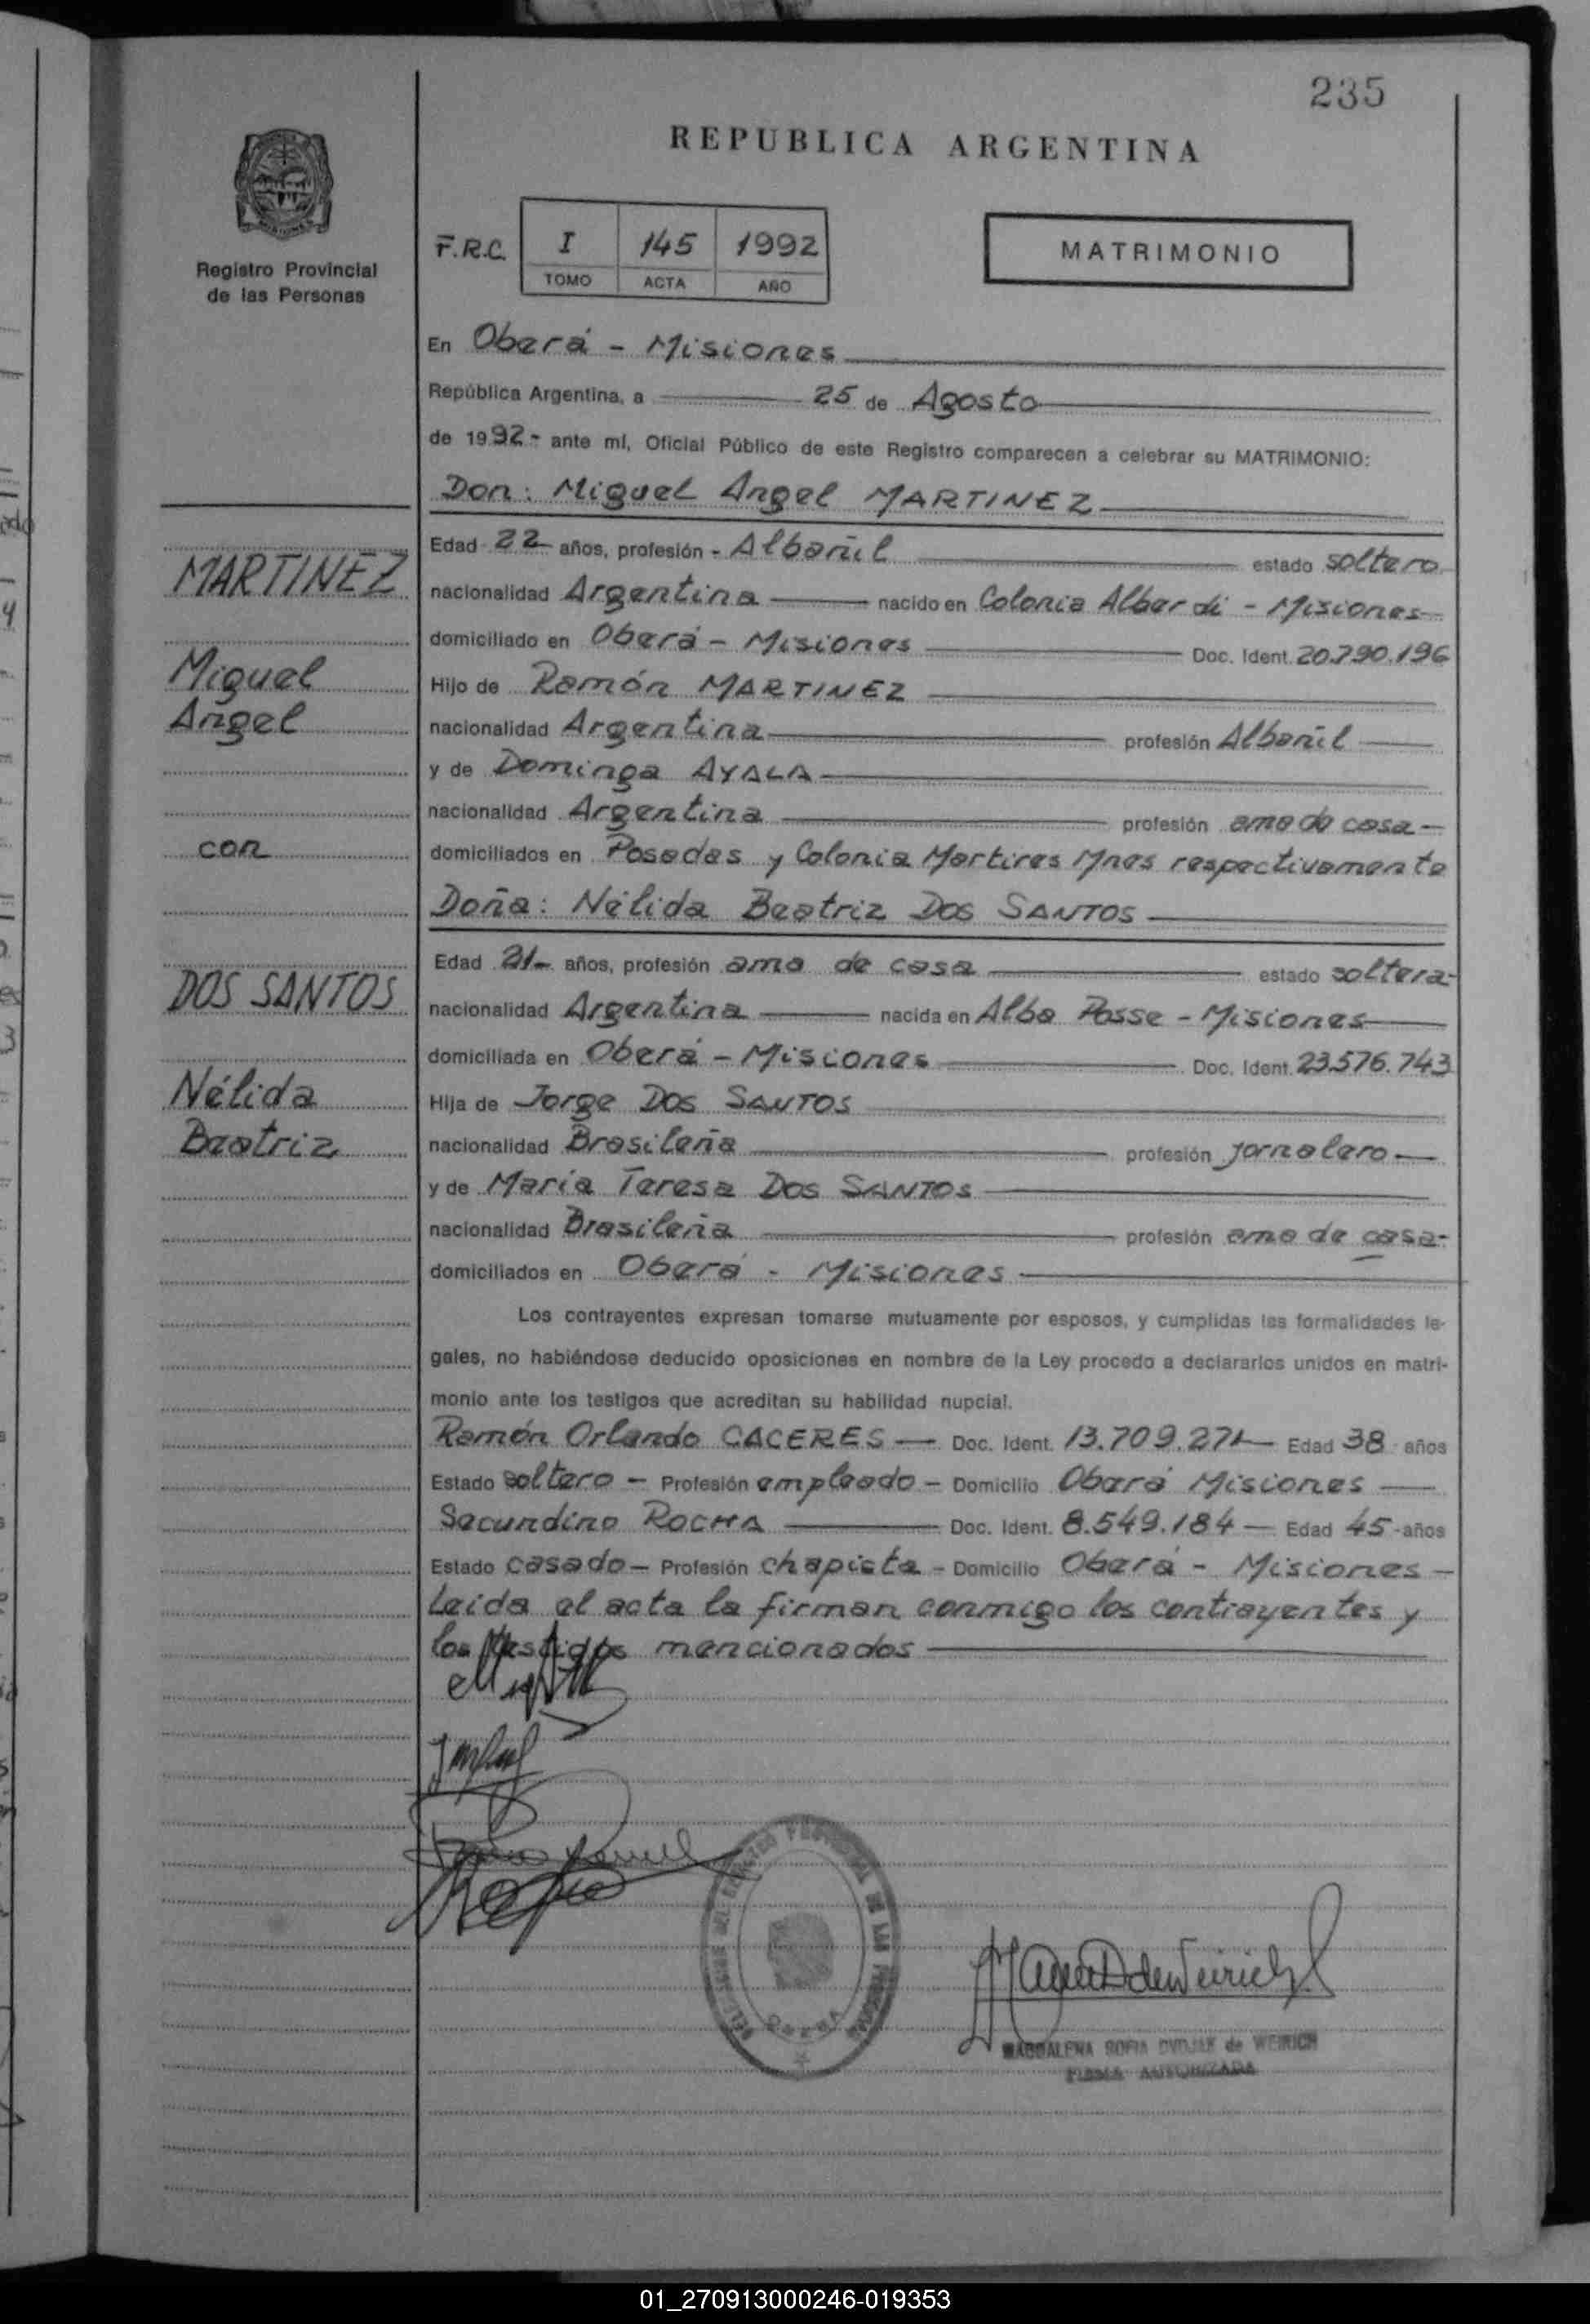 235
REPUBLICA ARGENTINA
Registro Provincial
de las Personas
F.R.C. I 145 1992
TOMO ACTA AÑO
MATRIMONIO
En Oberá - Misiones
República Argentina, a 25 de Agosto
de 1992- ante mí, Oficial Público de este Registro comparecen a celebrar su MATRIMONIO:
Don: Miguel Angel MARTINEZ
Edad 22 años, profesión - Albañil estado soltero
MARTINEZ
nacionalidad Argentina nacido en Colonia Alberdi - Misiones
domiciliado en Oberá - Misiones Doc. Ident. 20.790.196
Miguel
Hijo de Ramón MARTINEZ
Angel
nacionalidad Argentina profesión Albañil
y de Dominga AYALA
nacionalidad Argentina profesión ama de casa -
con
domiciliados en Posadas y Colonia Martires Mnes respectivamente
Doña: Nélida Beatriz DOS SANTOS
Edad 21 años, profesión ama de casa estado soltera-
DOS SANTOS
nacionalidad Argentina nacida en Alba Posse - Misiones
domiciliada en Oberá - Misiones Doc. Ident. 23.576.743
Nélida
Hija de Jorge DOS SANTOS
Beatriz
nacionalidad Brasileña profesión jornalero
y de María Teresa DOS SANTOS
nacionalidad Brasileña profesión ama de casa-
domiciliados en Oberá - Misiones
Los contrayentes expresan tomarse mutuamente por esposos, y cumplidas las formalidades le-
gales, no habiéndose deducido oposiciones en nombre de la Ley procedo a declararlos unidos en matri-
monio ante los testigos que acreditan su habilidad nupcial.
Ramón Orlando CACERES Doc. Ident. 13.709.271 Edad 38 años
Estado soltero - Profesión empleado - Domicilio Oberá Misiones
Secundino ROCHA Doc. Ident. 8.549.184 Edad 45 años
Estado casado - Profesión chapista - Domicilio Oberá - Misiones -
Leida el acta la firman conmigo los contrayentes y
los testigos mencionados
MAGDALENA SOFIA DVOJAK de WEIRICH
FIRMA AUTORIZADA
01_270913000246-019353